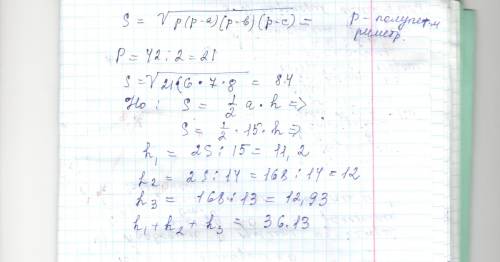 S = √p(p-a)(p-в)(p-c) = p - полупери
метр.
P = 42 : 2 = 21
S = √21(6 • 7 • 8 = 84
Но : S = 1/2 a • h =>
S = 1/2 • 15 • h =>
h₁ = 2S : 15 = 11,2
h₂ = 2S : 14 = 168 : 14 = 12
h₃ = 168 : 13 = 12,93
h₁ + h₂ + h₃ = 36.13